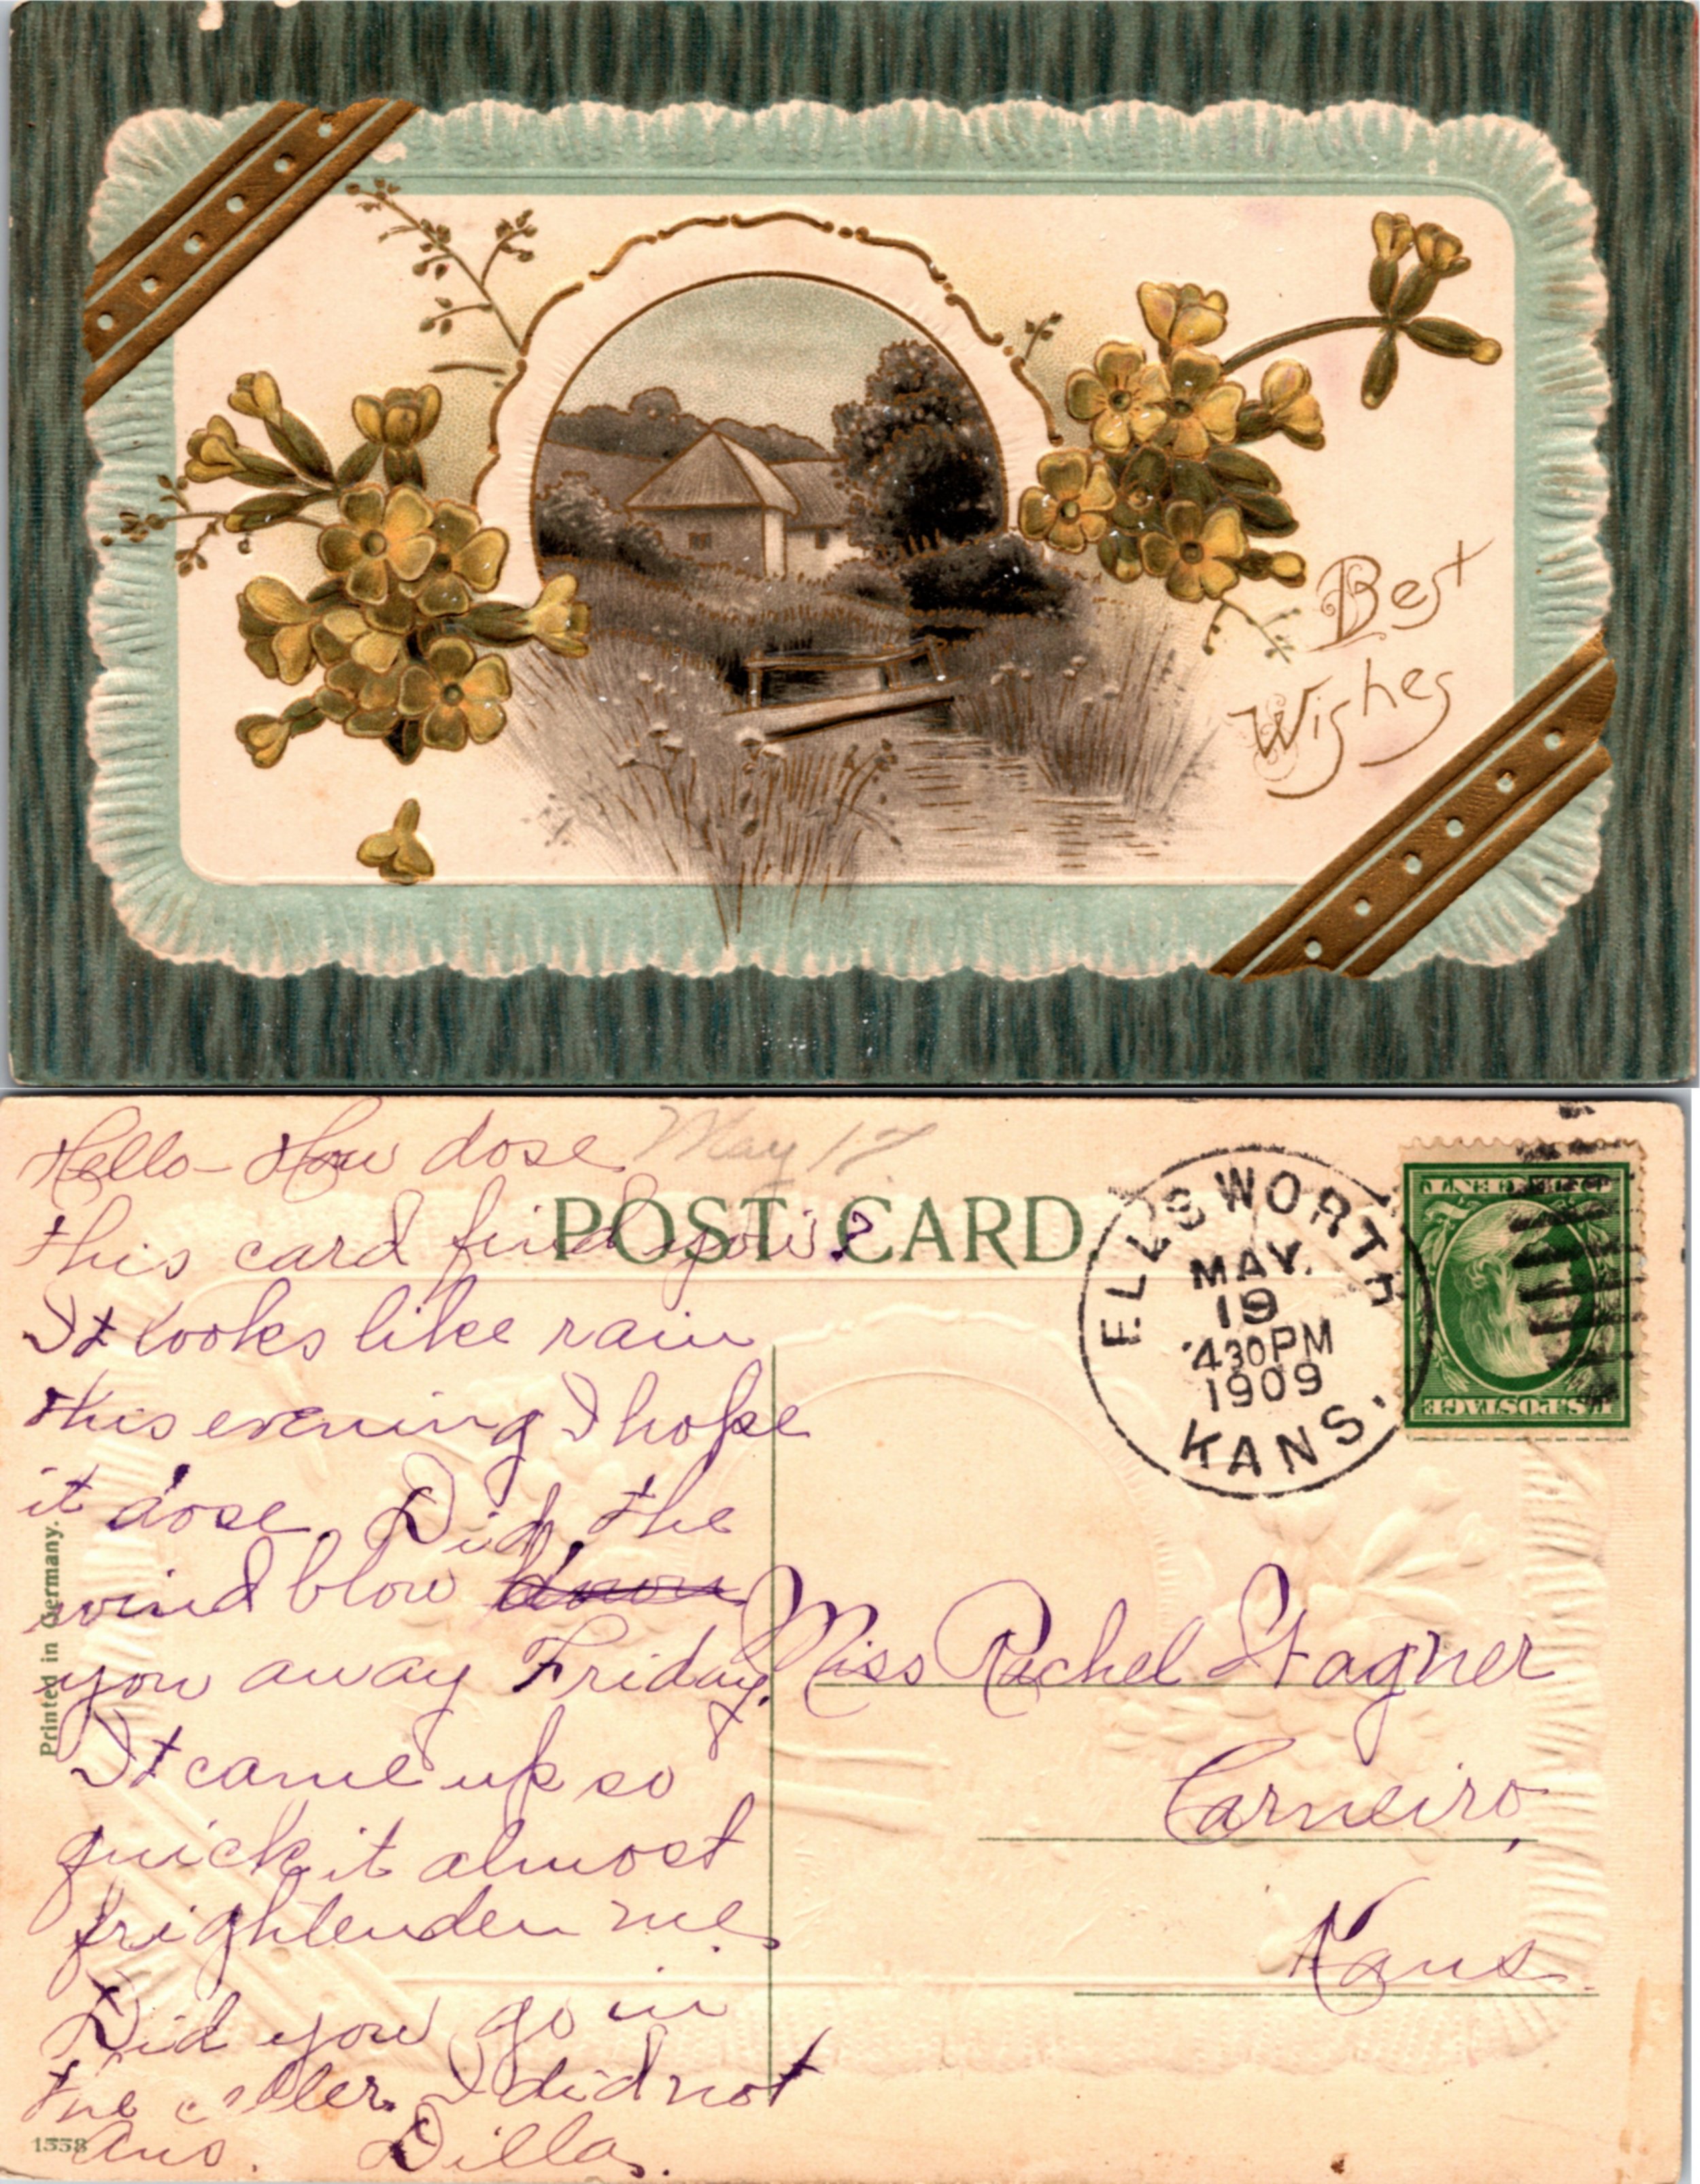 Best
Wishes
May 17
POST CARD
ELLSWORTH
MAY.
19
430PM
1909
KANS.
U.S. POSTAGE
Hello- How dose
this card find you?
It looks like rain
this evening I hope
it dose. Did the
wind blow down
you away Friday.
It came up so
quick it almost
frightenden me.
Did you go in
the celler. I did not
Ans. Dilla.
Miss Rachel Stagner
Carneiro,
Kans.
Printed in Germany.
1558